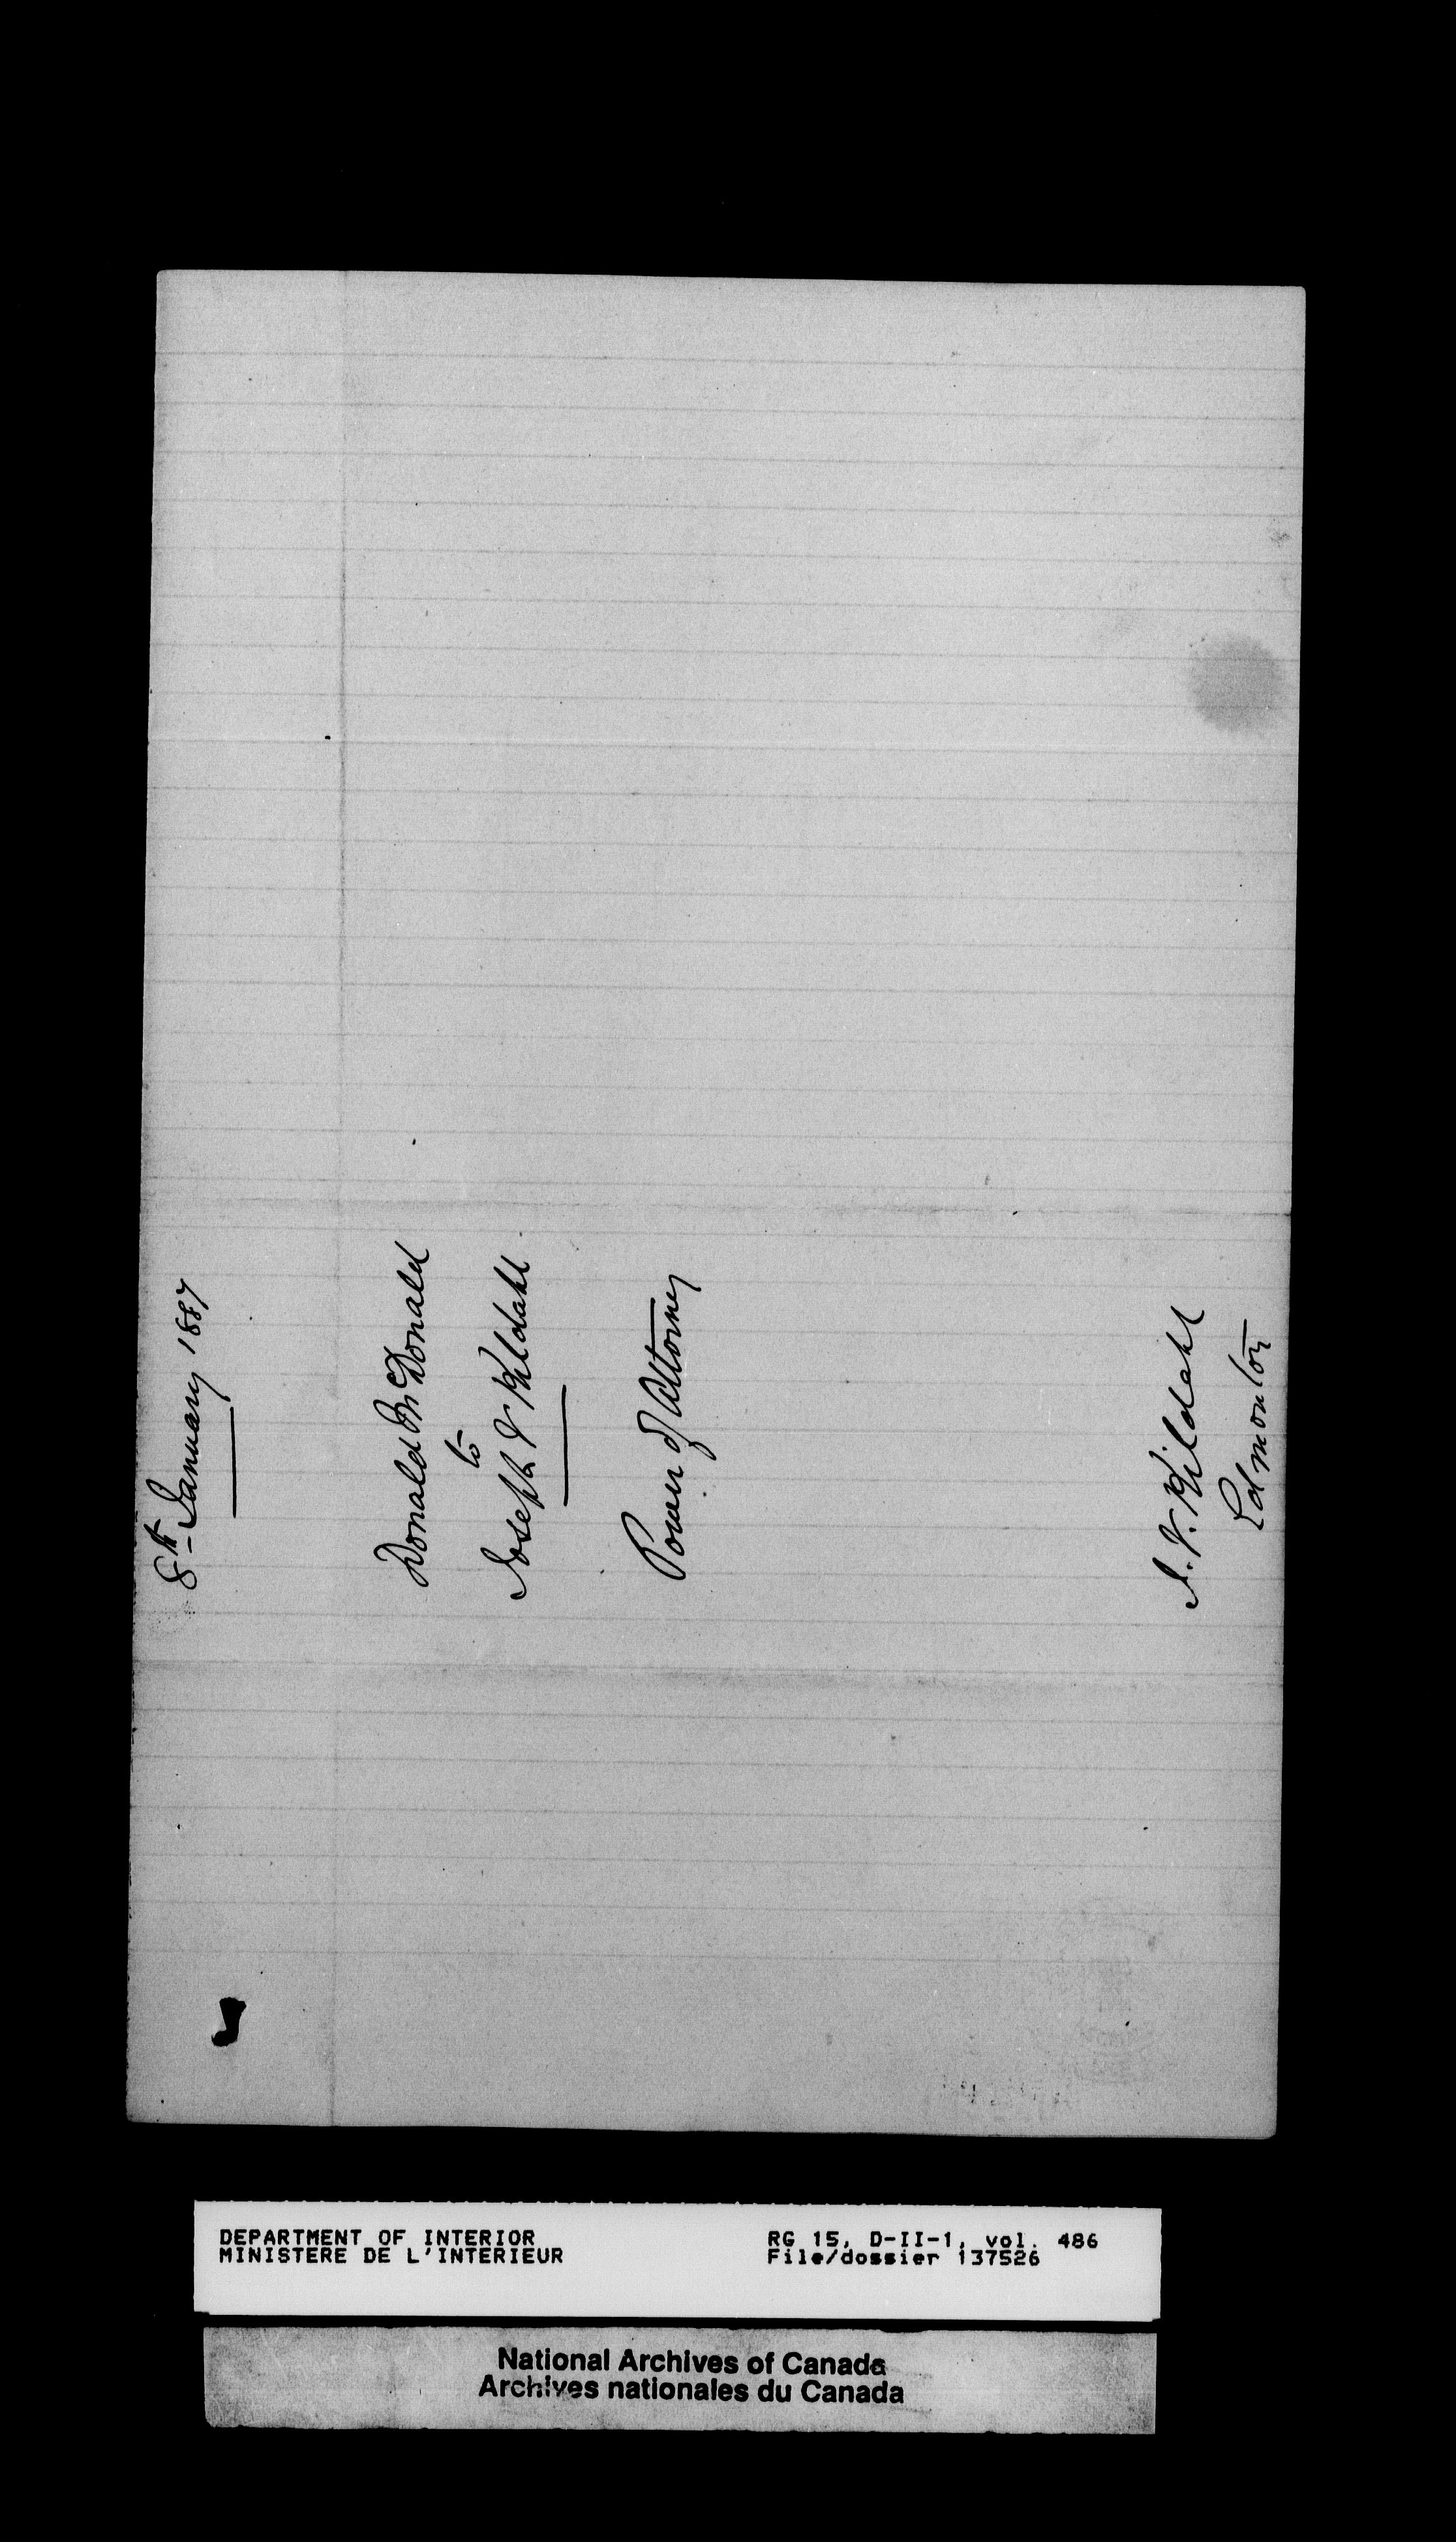 8th January 1887
Donald McDonald
to
Joseph V Kildahl
Power of Attorney
J. V. Kildahl
Edmonton
DEPARTMENT OF INTERIOR
MINISTERE DE L'INTERIEUR
RG 15, D-II-1, vol. 486
File/dossier 137526
National Archives of Canada
Archives nationales du Canada